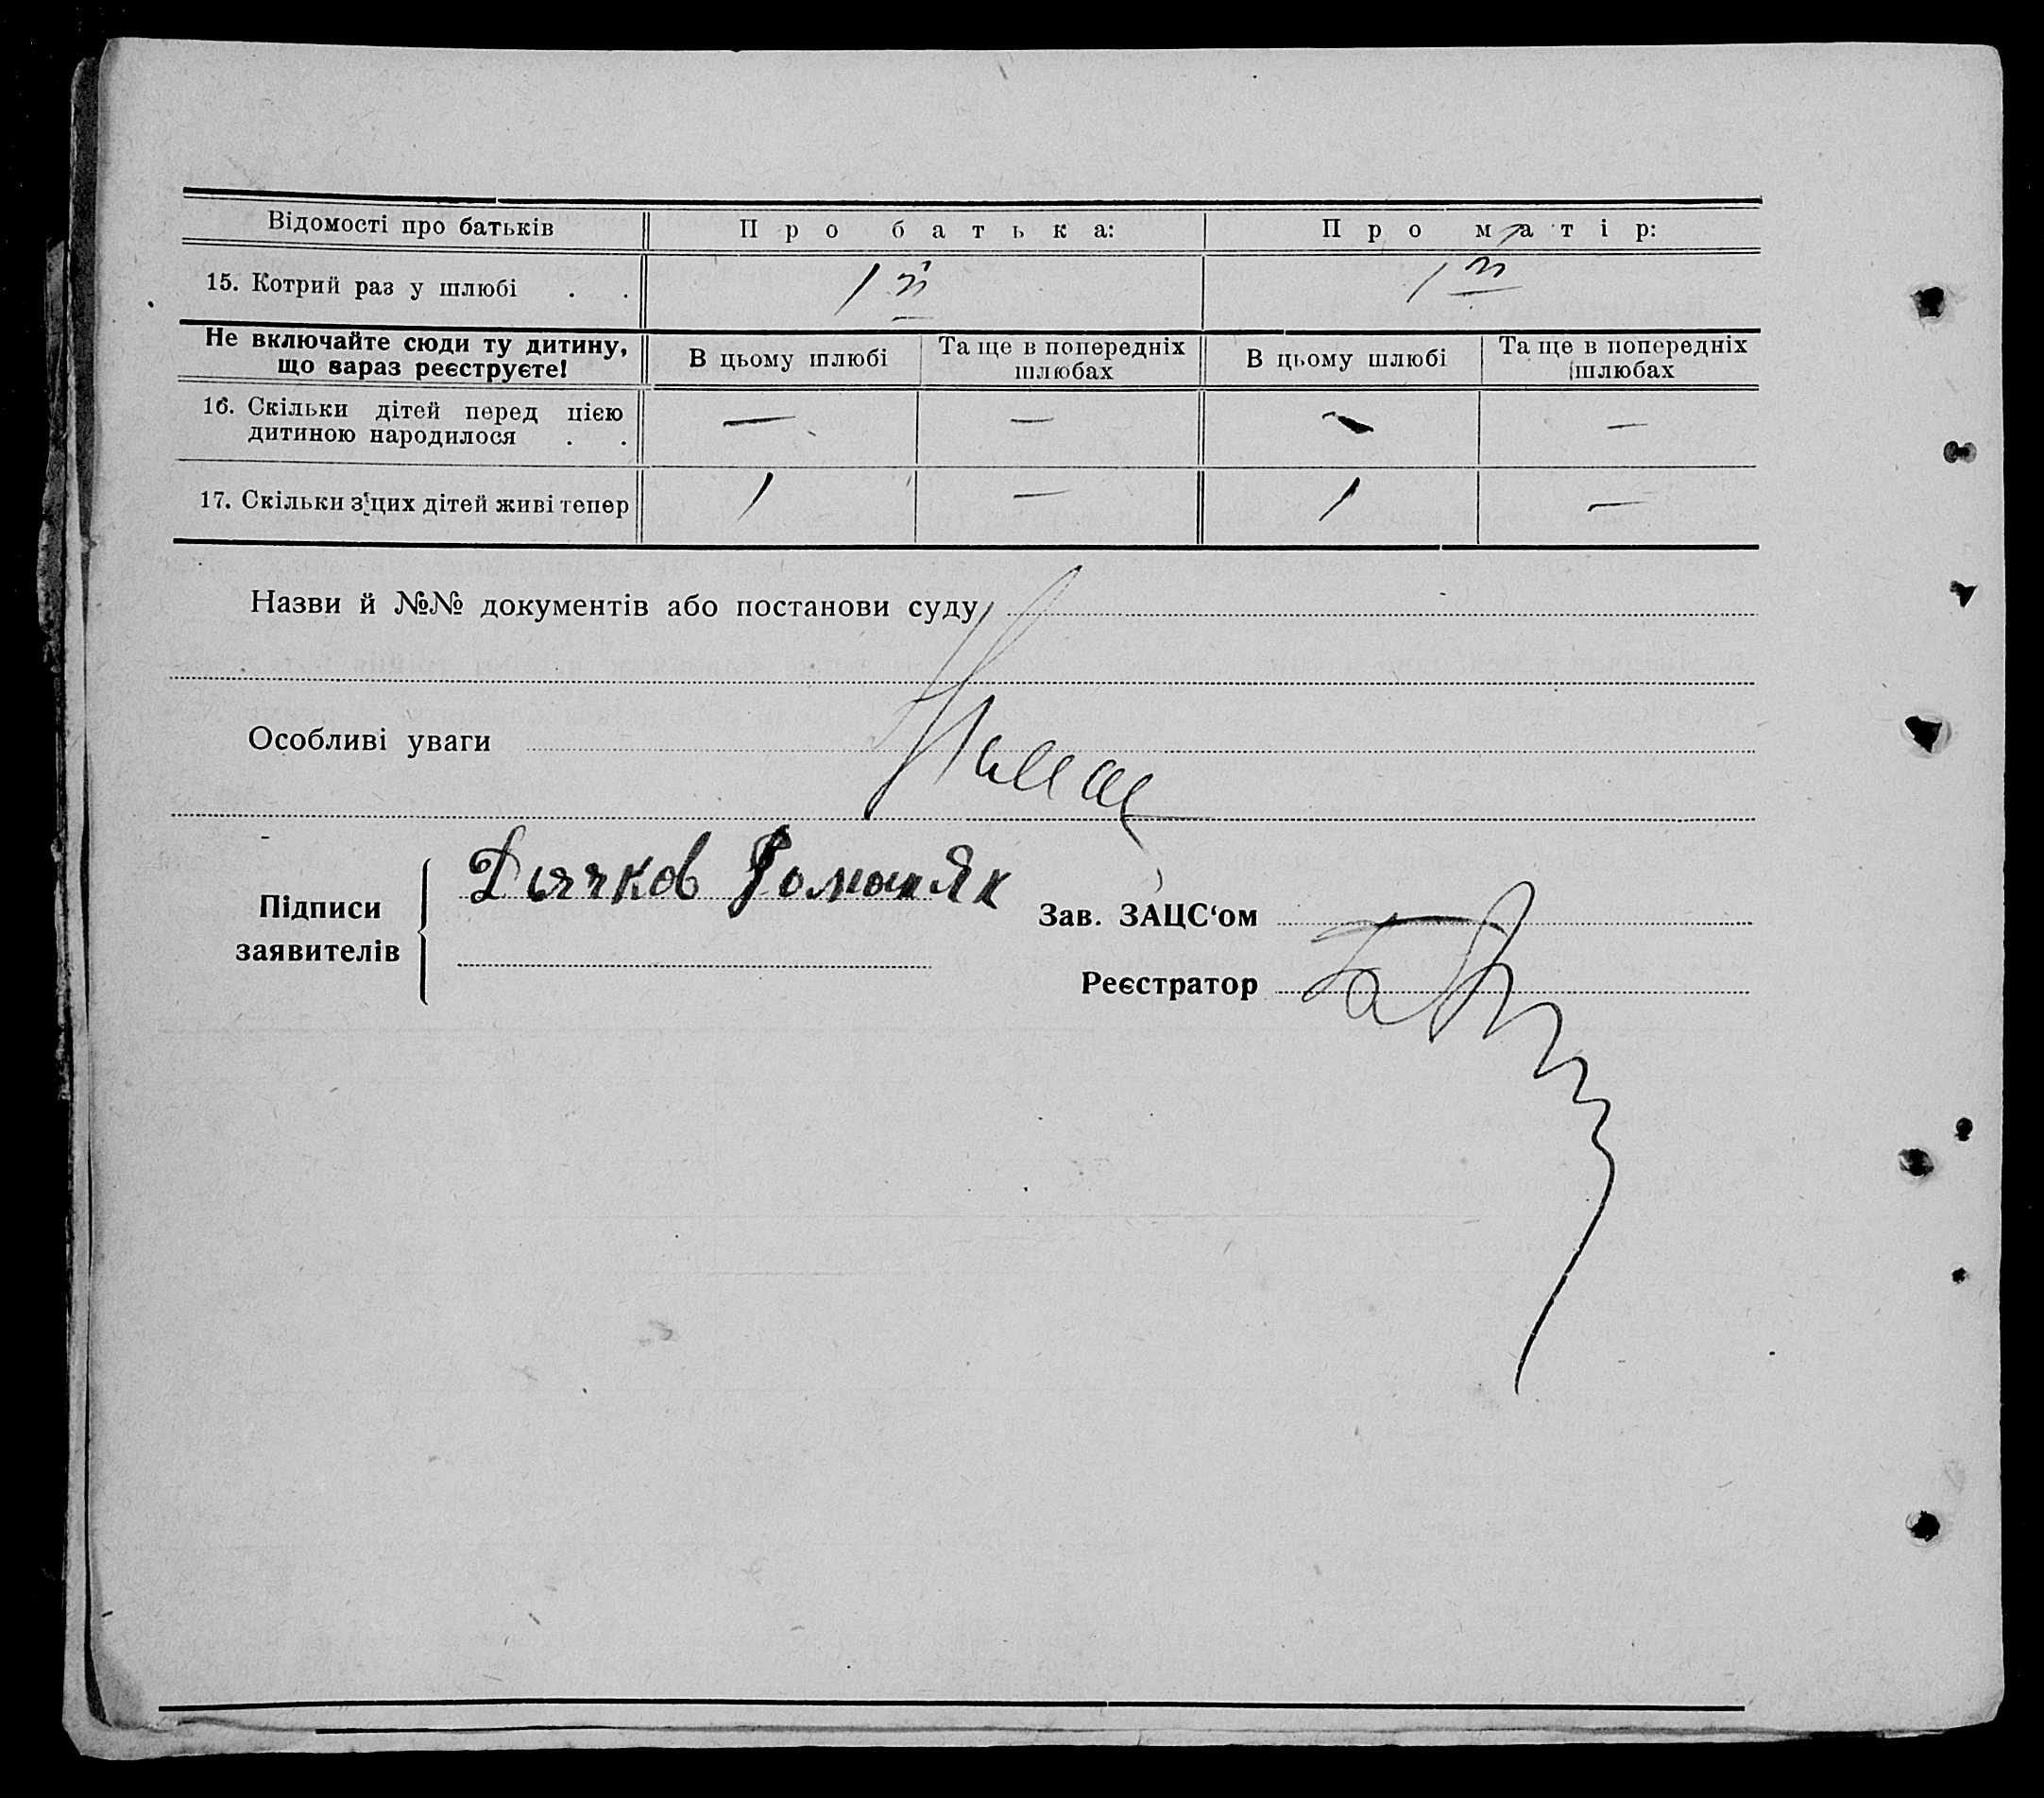 Відомості про батьків Про батька: Про матір:
15. Котрий раз у шлюбі . . 1й 1й
Не включайте сюди ту дитину, що вараз реєструєте! В цьому шлюбі Та ще в попередніх шлюбах В цьому шлюбі Та ще в попередніх шлюбах
16. Скільки дітей перед цією — — — —
дитиною народилося . .
17. Скільки з цих дітей живі тепер 1 — 1 —
Назви й №№ документів або постанови суду
Особливі уваги
Підписи заявителів
Зав. ЗАЦС‘ом
Реєстратор